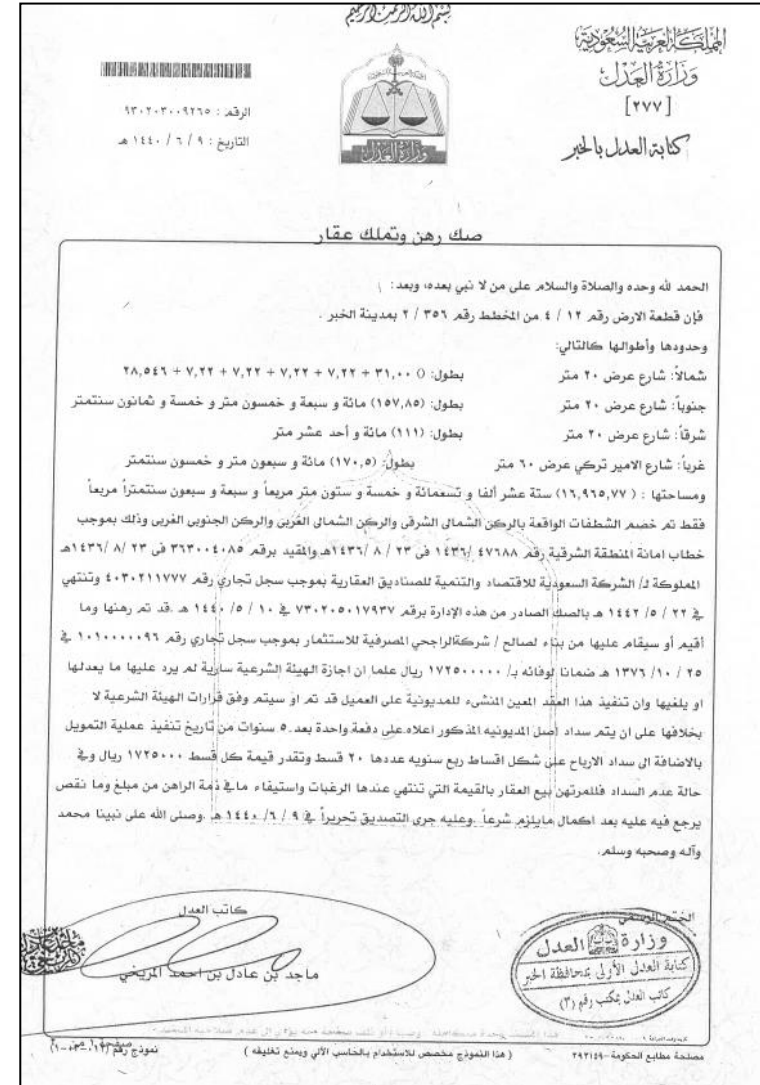 بسم الله الرحمن الرحيم
المملكة العربية السعودية
وزارة العدل
[٢٧٧]
كتابة العدل بالخبر
وزارة العدل
الرقم : ٩٣٠٢٠٣٠٠٩٢٦٥
التاريخ : ٩ / ٦ / ١٤٤٠ هـ
صك رهن وتملك عقار
الحمد لله وحده والصلاة والسلام على من لا نبي بعده، وبعد:
فإن قطعة الارض رقم ١٢ / ٤ من المخطط رقم ٣٥٦ / ٢ بمدينة الخبر .
وحدودها وأطوالها كالتالي:
شمالاً: شارع عرض ٢٠ متر بطول: () ٣١,٠٠ + ٧,٢٢ + ٧,٢٢ + ٧,٢٢ + ٧,٢٢ + ٢٨,٥٤٦
جنوباً: شارع عرض ٢٠ متر بطول: (١٥٧,٨٥) مائة و سبعة و خمسون متر و خمسة و ثمانون سنتمتر
شرقاً: شارع عرض ٢٠ متر بطول: (١١١) مائة و أحد عشر متر
غرباً: شارع الامير تركي عرض ٦٠ متر بطول: (١٧٠,٥) مائة و سبعون متر و خمسون سنتمتر
ومساحتها : (١٦,٩٦٥,٧٧) ستة عشر ألفا و تسعمائة و خمسة و ستون متر مربعاً و سبعة و سبعون سنتمتراً مربعاً
فقط تم خصم الشطفات الواقعة بالركن الشمالى الشرقى والركن الشمالى الغربى والركن الجنوبى الغربى وذلك بموجب
خطاب امانة المنطقة الشرقية رقم ٤٧٦٨٨ /١٤٣٦ فى ٢٣ / ٨ /١٤٣٦هـ والمقيد برقم ٣٦٣٠٠٤٠٨٥ فى ٢٣ /٨ /١٤٣٦هـ
المملوكة لـ/ الشركة السعودية للاقتصاد والتنمية للصناديق العقارية بموجب سجل تجاري رقم ٤٠٣٠٢١١٧٧٧ وتنتهي
في ٢٢ / ٥ / ١٤٤٢ هـ بالصك الصادر من هذه الإدارة برقم ٧٣٠٢٠٥٠١٧٩٣٧ في ١٠ / ٥ / ١٤٤٠ هـ .قد تم رهنها وما
أقيم أو سيقام عليها من بناء لصالح / شركةالراجحي المصرفية للاستثمار بموجب سجل تجاري رقم ١٠١٠٠٠٠٠٩٦ في
٢٥ / ١٠ / ١٣٧٦ هـ ضمانا لوفائه بـ/ ١٧٢٥٠٠٠٠٠ ريال علما ان اجازة الهيئة الشرعية سارية لم يرد عليها ما يعدلها
او يلغيها وان تنفيذ هذا العقد المعين المنشىء للمديونية على العميل قد تم او سيتم وفق قرارات الهيئة الشرعية لا
بخلافها على ان يتم سداد أصل المديونيه المذكور اعلاه على دفعة واحدة بعد ٥ سنوات من تاريخ تنفيذ عملية التمويل
بالاضافة الى سداد الارباح على شكل اقساط ربع سنويه عددها ٢٠ قسط وتقدر قيمة كل قسط ١٧٢٥٠٠٠ ريال وفي
حالة عدم السداد فللمرتهن بيع العقار بالقيمة التي تنتهي عندها الرغبات واستيفاء مافي ذمة الراهن من مبلغ وما نقص
يرجع فيه عليه بعد اكمال مايلزم شرعاً .وعليه جرى التصديق تحريراً في ٩ / ٦ / ١٤٤٠ هـ .وصلى الله على نبينا محمد
وآله وصحبه وسلم.
كاتب العدل
ماجد بن عادل بن احمد المريخي
الختم الرسمي
وزارة العدل
كتابة العدل الأولى بمحافظة الخبر
كاتب العدل بمكتب رقم (٣)
مصلحة مطابع الحكومة-٣٩٢١٤٩
( هذا النموذج مخصص للاستخدام بالحاسب الآلي ويمنع تغليفه )